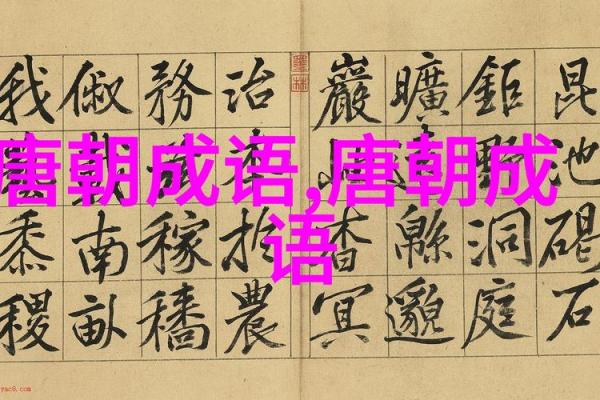 唐朝成语,唐朝成
语
昆池碣石
鉅野洞庭
曠遠緜邈
巖杳冥
治扵農
務稼穡
俶載南畝
我黍稷